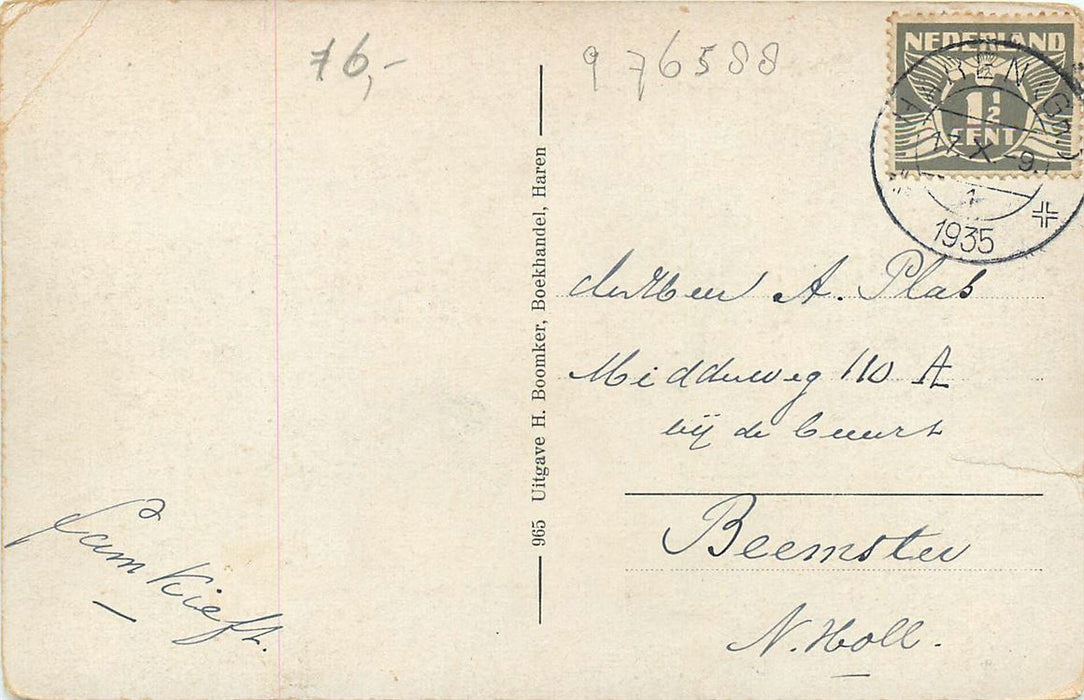 76,-
976588
NEDERLAND
1½
CENT
HAREN (GR)
11 X -9
1
1935
965 Uitgave H. Boomker, Boekhandel, Haren
den Heer A. Plas
Middenweg 110 A
bij de buurt
Beemster
N. Holl.
Fam Kieft.